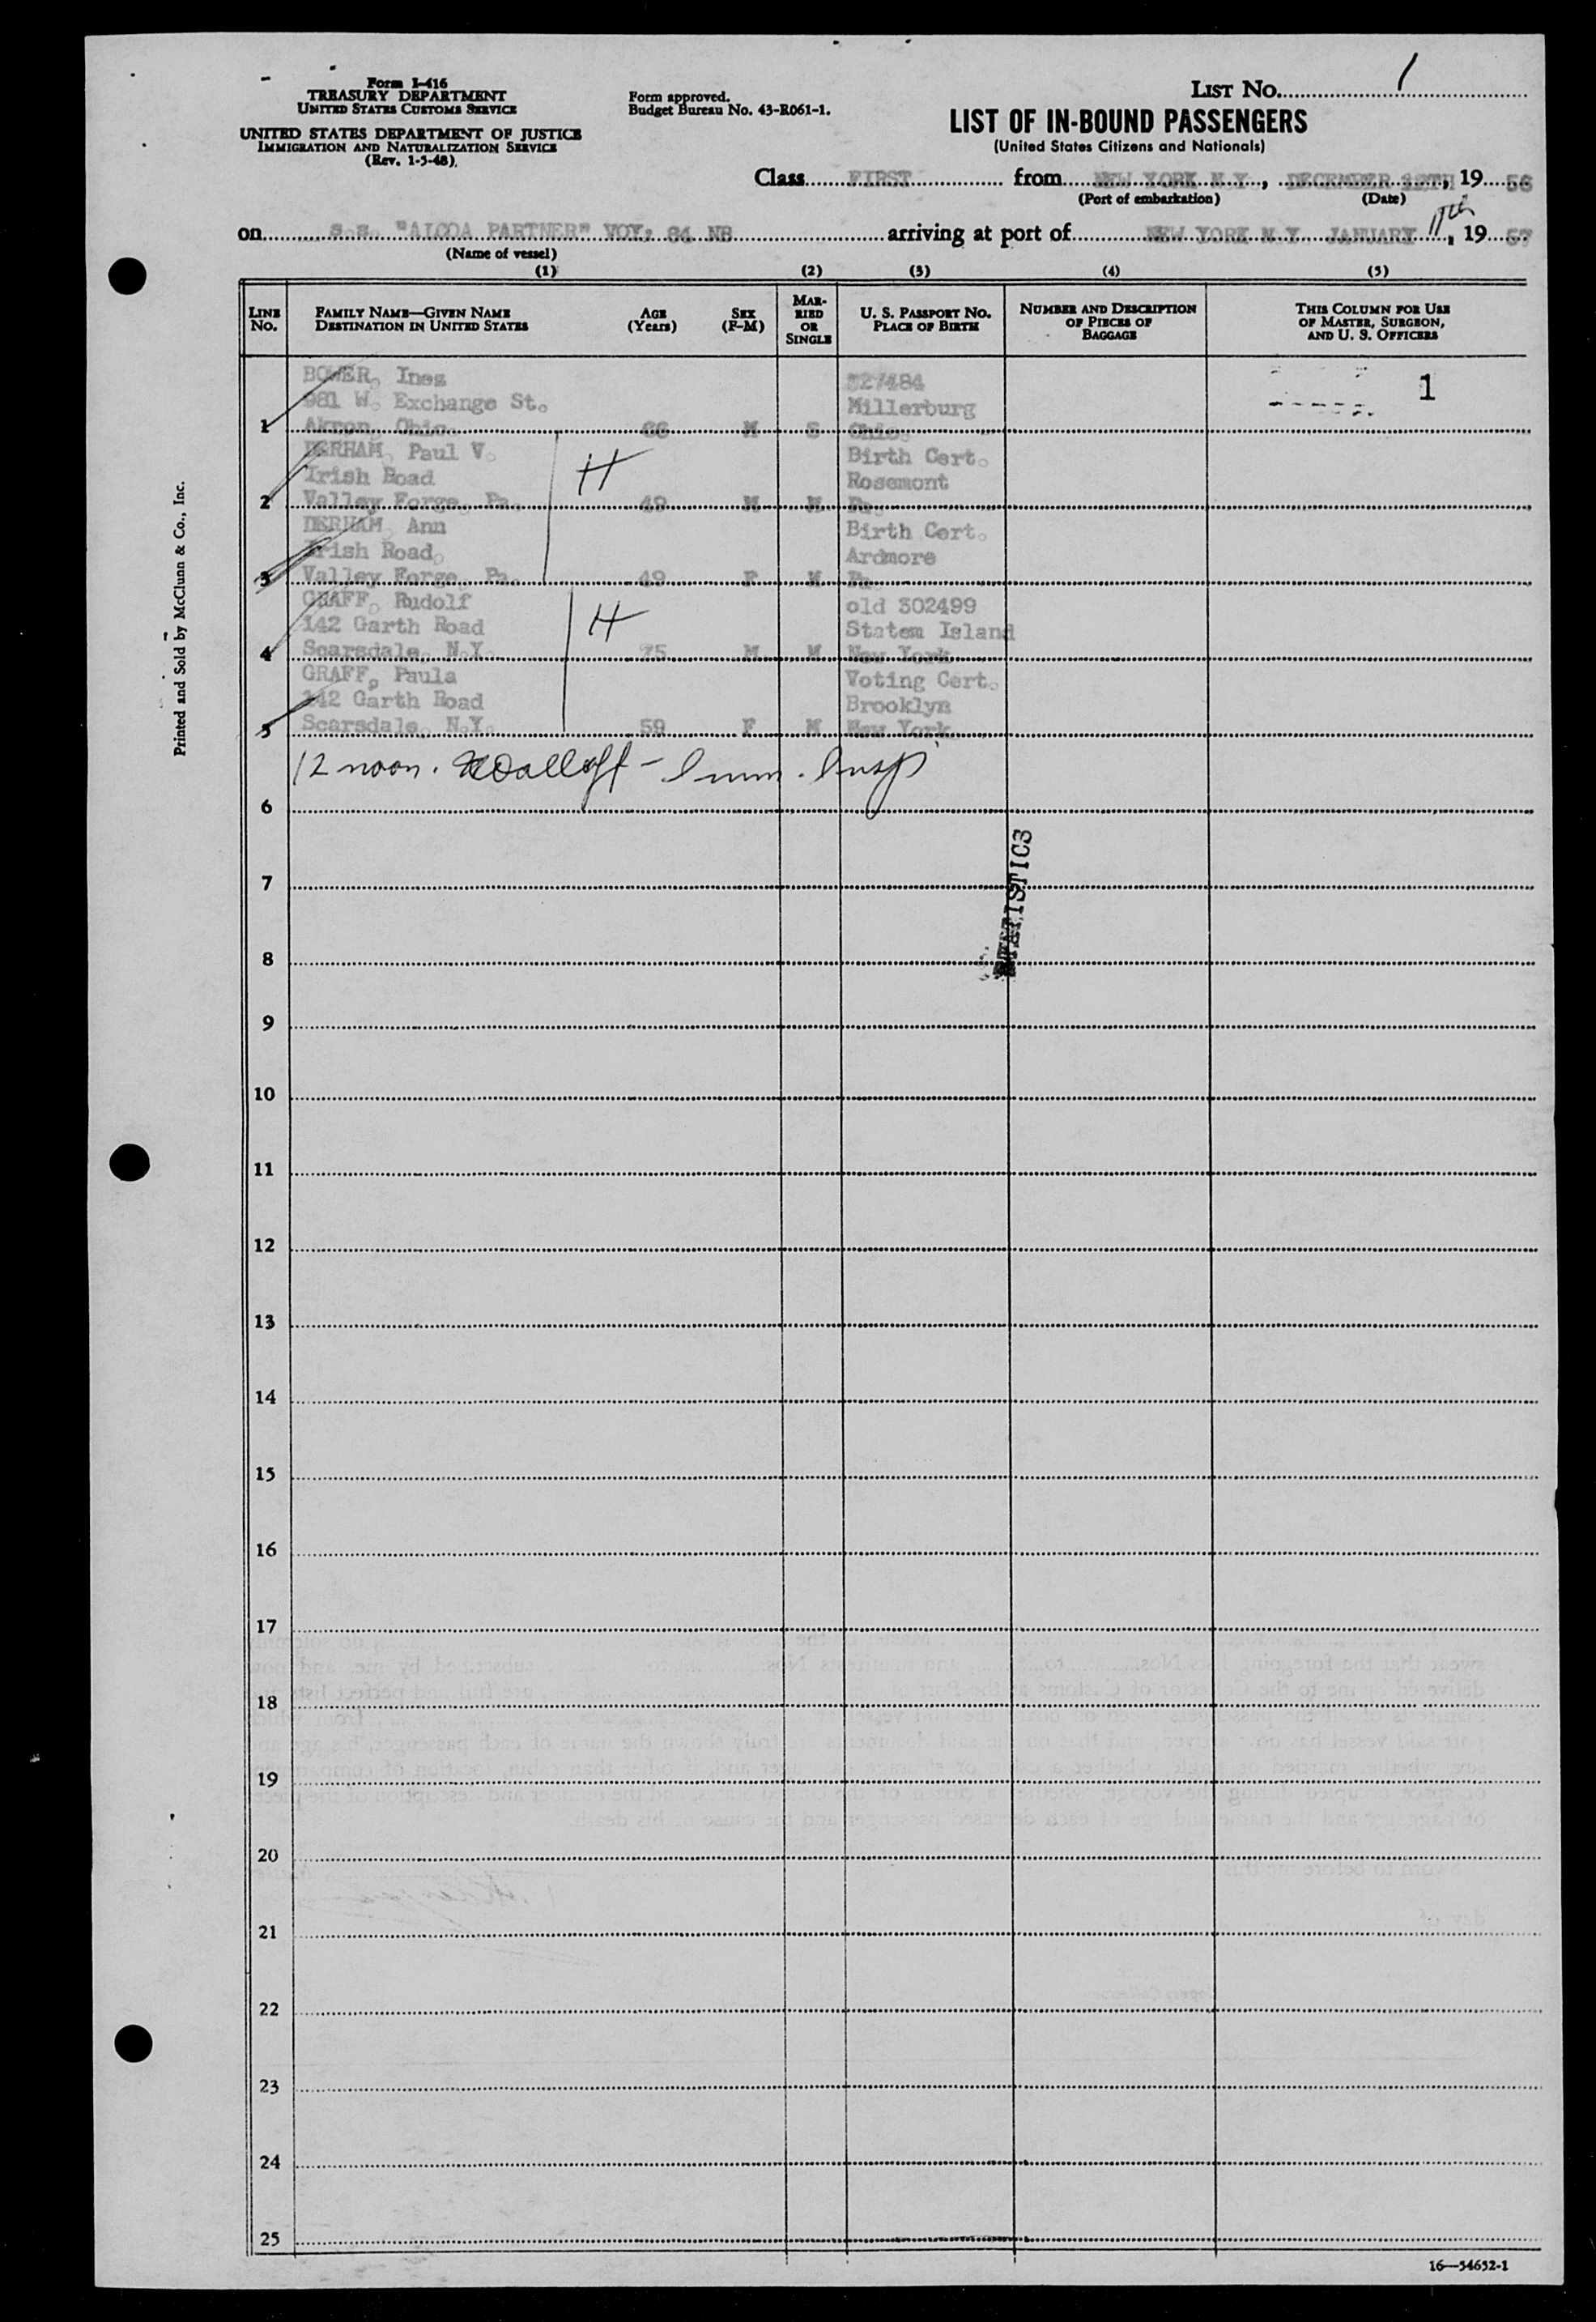 Form I-416
TREASURY DEPARTMENT
UNITED STATES CUSTOMS SERVICE
UNITED STATES DEPARTMENT OF JUSTICE
IMMIGRATION AND NATURALIZATION SERVICE
(Rev. 1-5-48)
Form approved.
Budget Bureau No. 43-R061-1.
LIST No. 1
LIST OF IN-BOUND PASSENGERS
(United States Citizens and Nationals)
Class FIRST from NEW YORK N.Y., DECEMBER 12TH, 19 56
(Port of embarkation) (Date)
on S.S. "ALCOA PARTNER" VOY: 84 NB arriving at port of NEW YORK N.Y. JANUARY 11th, 19 57
(Name of vessel)
(1) (2) (3) (4) (5)
LINE No. FAMILY NAME—GIVEN NAME DESTINATION IN UNITED STATES AGE (Years) SEX (F-M) MARRIED OR SINGLE U. S. PASSPORT NO. PLACE OF BIRTH NUMBER AND DESCRIPTION OF PIECES OF BAGGAGE THIS COLUMN FOR USE OF MASTER, SURGEON, AND U. S. OFFICERS
BOWER, Inez 327484 1
981 W. Exchange St. Millerburg
1 Akron, Ohio. 66 M S Ohio.
DERHAM, Paul V. Birth Cert.
Irish Road H Rosemont
2 Valley Forge, Pa. 49 M M Pa.
DERHAM, Ann Birth Cert.
Irish Road, Ardmore
3 Valley Forge, Pa. 49 F M Pa.
GRAFF, Rudolf old 302499
142 Garth Road H Staten Island
4 Scarsdale, N.Y. 75 M M New York
GRAFF, Paula Voting Cert.
142 Garth Road Brooklyn
5 Scarsdale, N.Y. 59 F M New York
12 noon. - Imm. Insp
6
7
STATISTICS
8
9
10
11
12
13
14
15
16
17
18
19
20
21
22
23
24
25
16—54652-1
Printed and Sold by McClunn & Co., Inc.